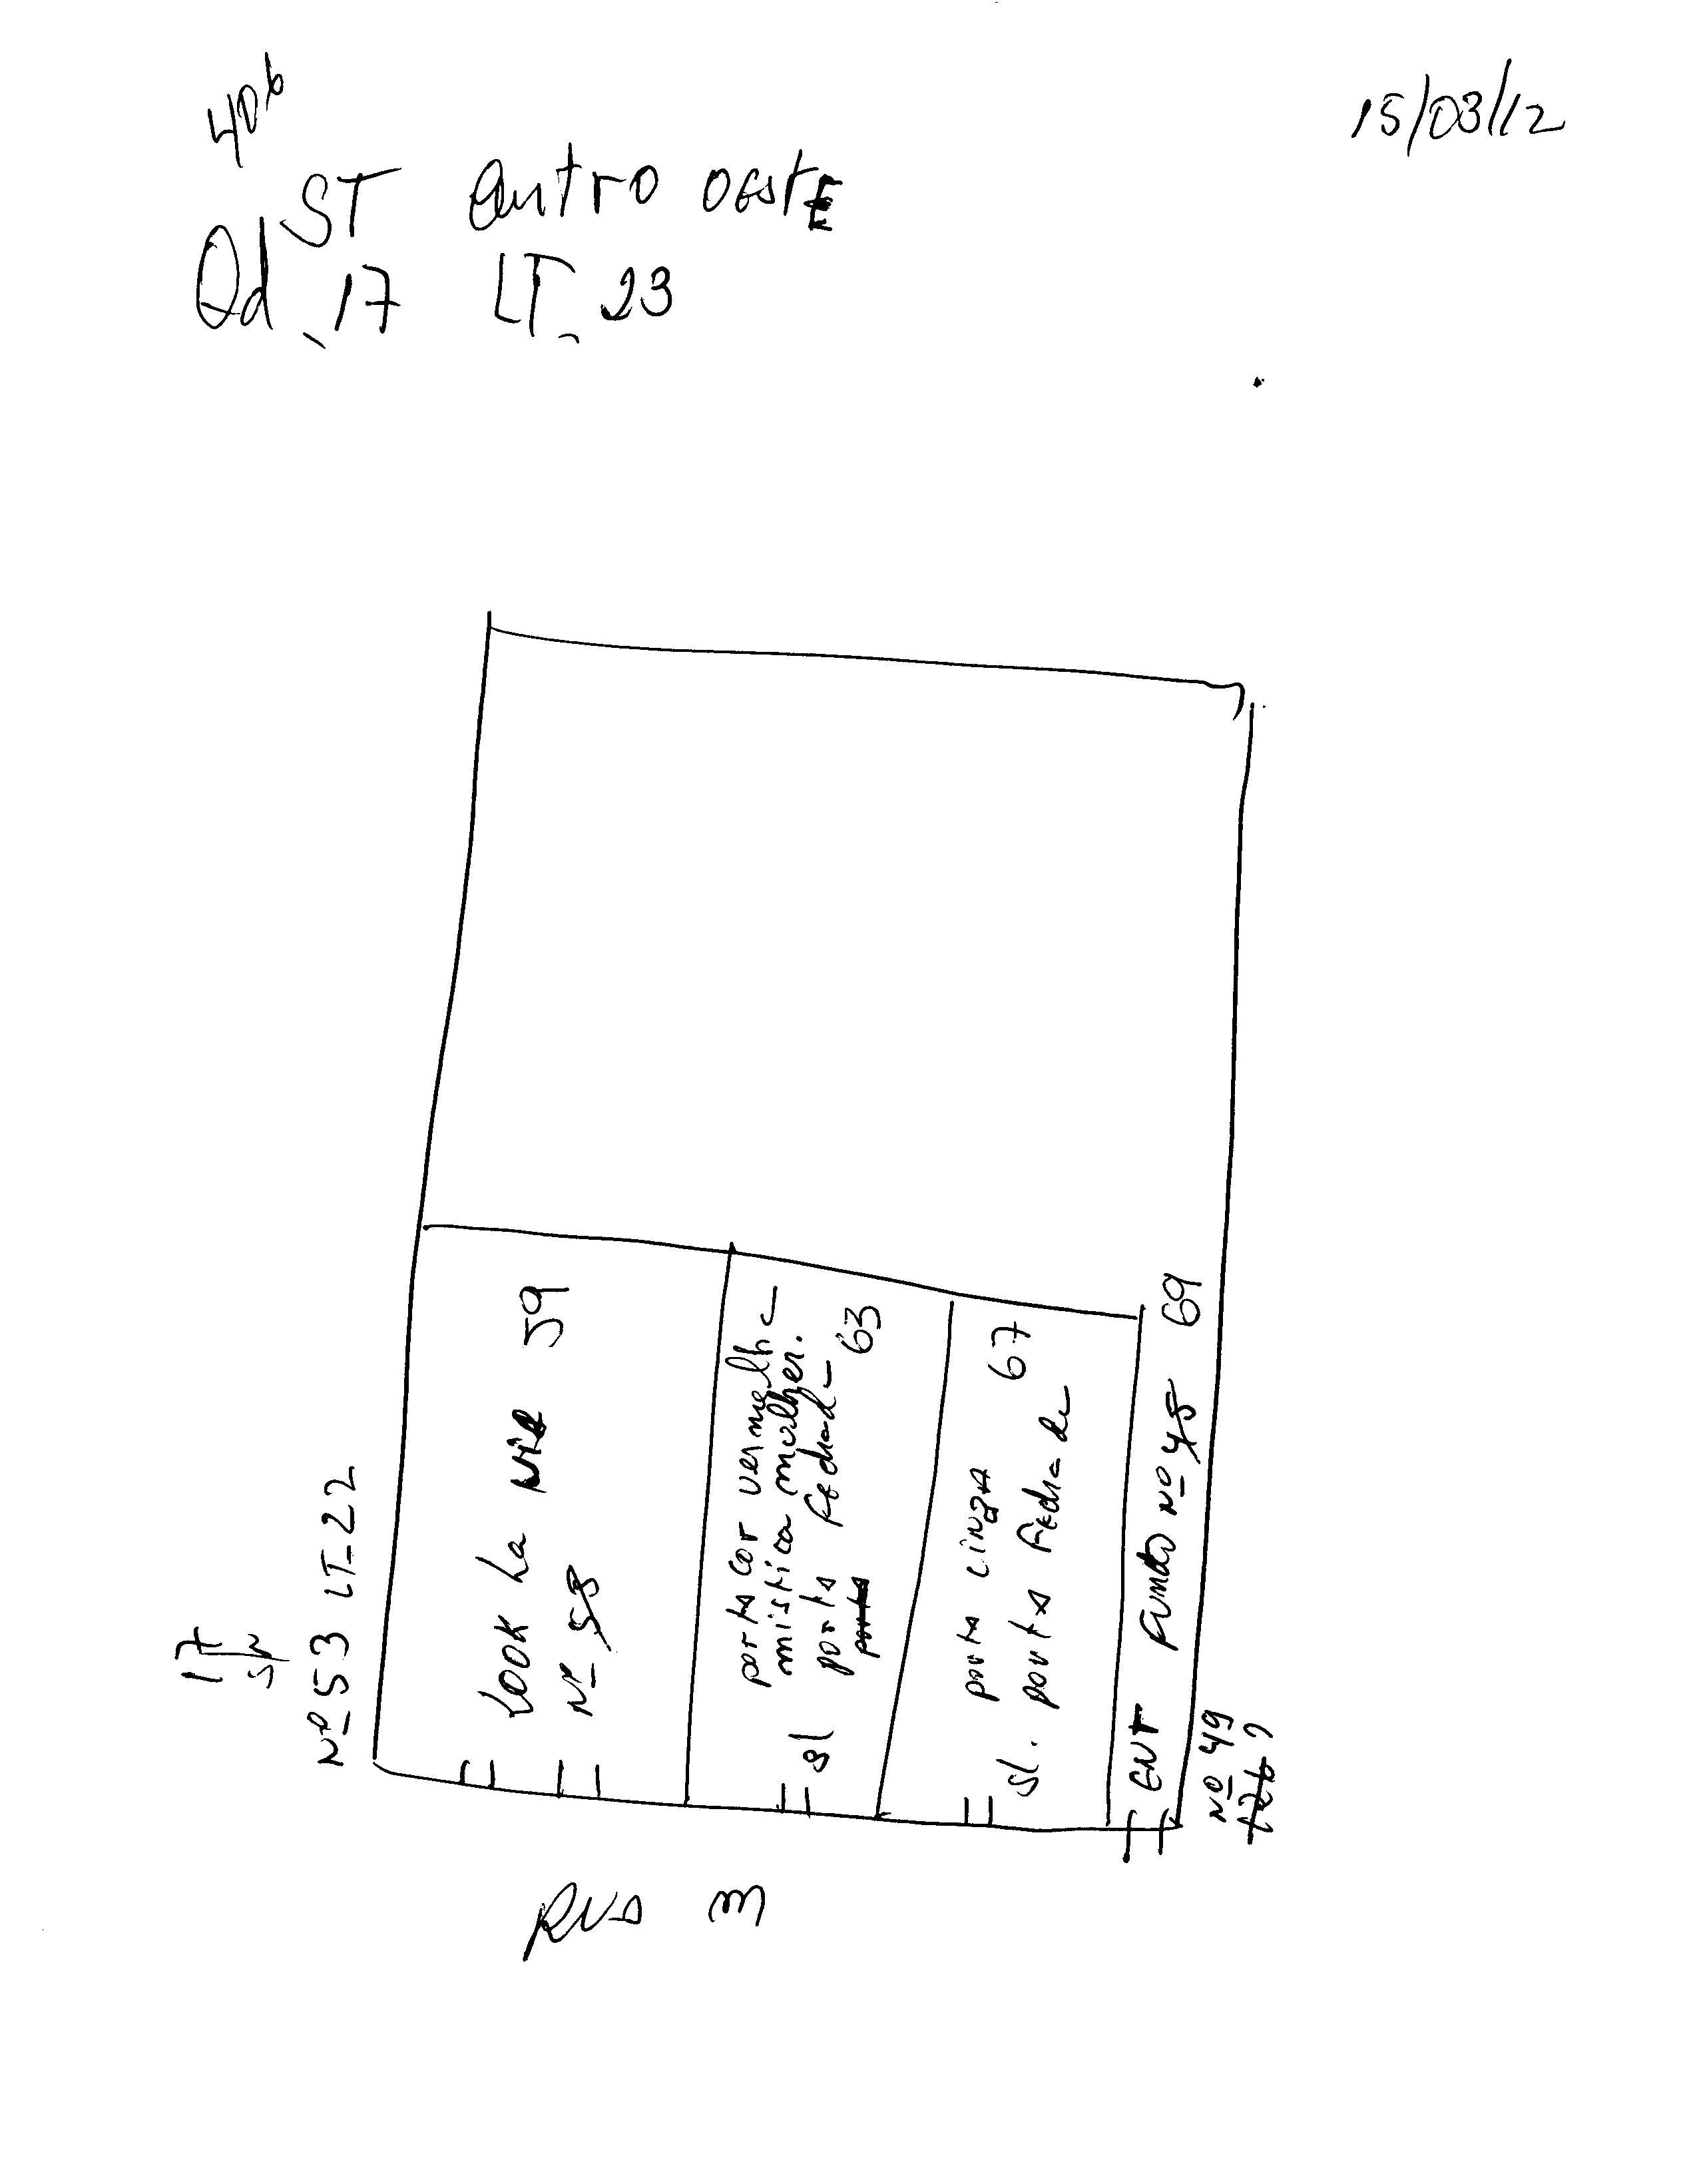 406
15/03/12
ST Centro oeste
Qd. 17 LT. 23
17
Nº 53 LT-22
Look La 59
Nº 53
porta cor vermelha
mistica mulher.
sl porta Fechada
porta 63
porta cinza 67
sl. porta Fechada
ENT Fundo Nº 45 69
Nº 49
RUA M